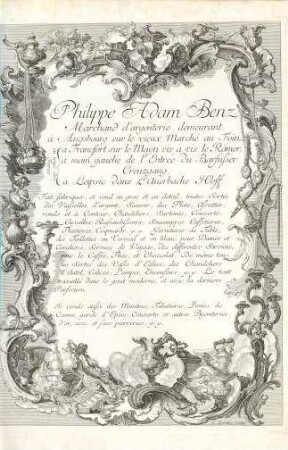 Philippe Adam Benz
Marchand d'argenterie demeurant
a Augsbourg sur le vieux Marché au Foin,
a Francfort sur le Mayn vis a vis le Römer,
a main gauche de l'Entrée du Barfüsser
Creuzgang,
a Leipsic dans L'Auerbachs Hoff
Fait fabriquer, et vend en gros et en detail, toutes sortes
de Vaisselles d'argent, sçavoir, des Plats, Assiettes
ronds et a Contour, Chandeliers, Couverts,
Cuvettes, Caffetieres,
Theyeres, Garnitures de Table,
des Toillettes en Vermeil et en blanc, pour Dames et
Cavaliers, Services de Voyage, des differents Services,
pour le Caffée, Thée, et Chocolat, De même tou-
tes sortes des Vases d'Eglise, des Chandeliers
d'Autel, Calices, Lampes, Encensoirs, Le tout
travaillé dans le gout moderne, et avec la derniere
Perfection.
Il vende aussi des Montres, Tabatieres, Pomes de
Canne, garde d'Epées, Couverts et autres Bijouteries
d'or, avec et sans pierreries,